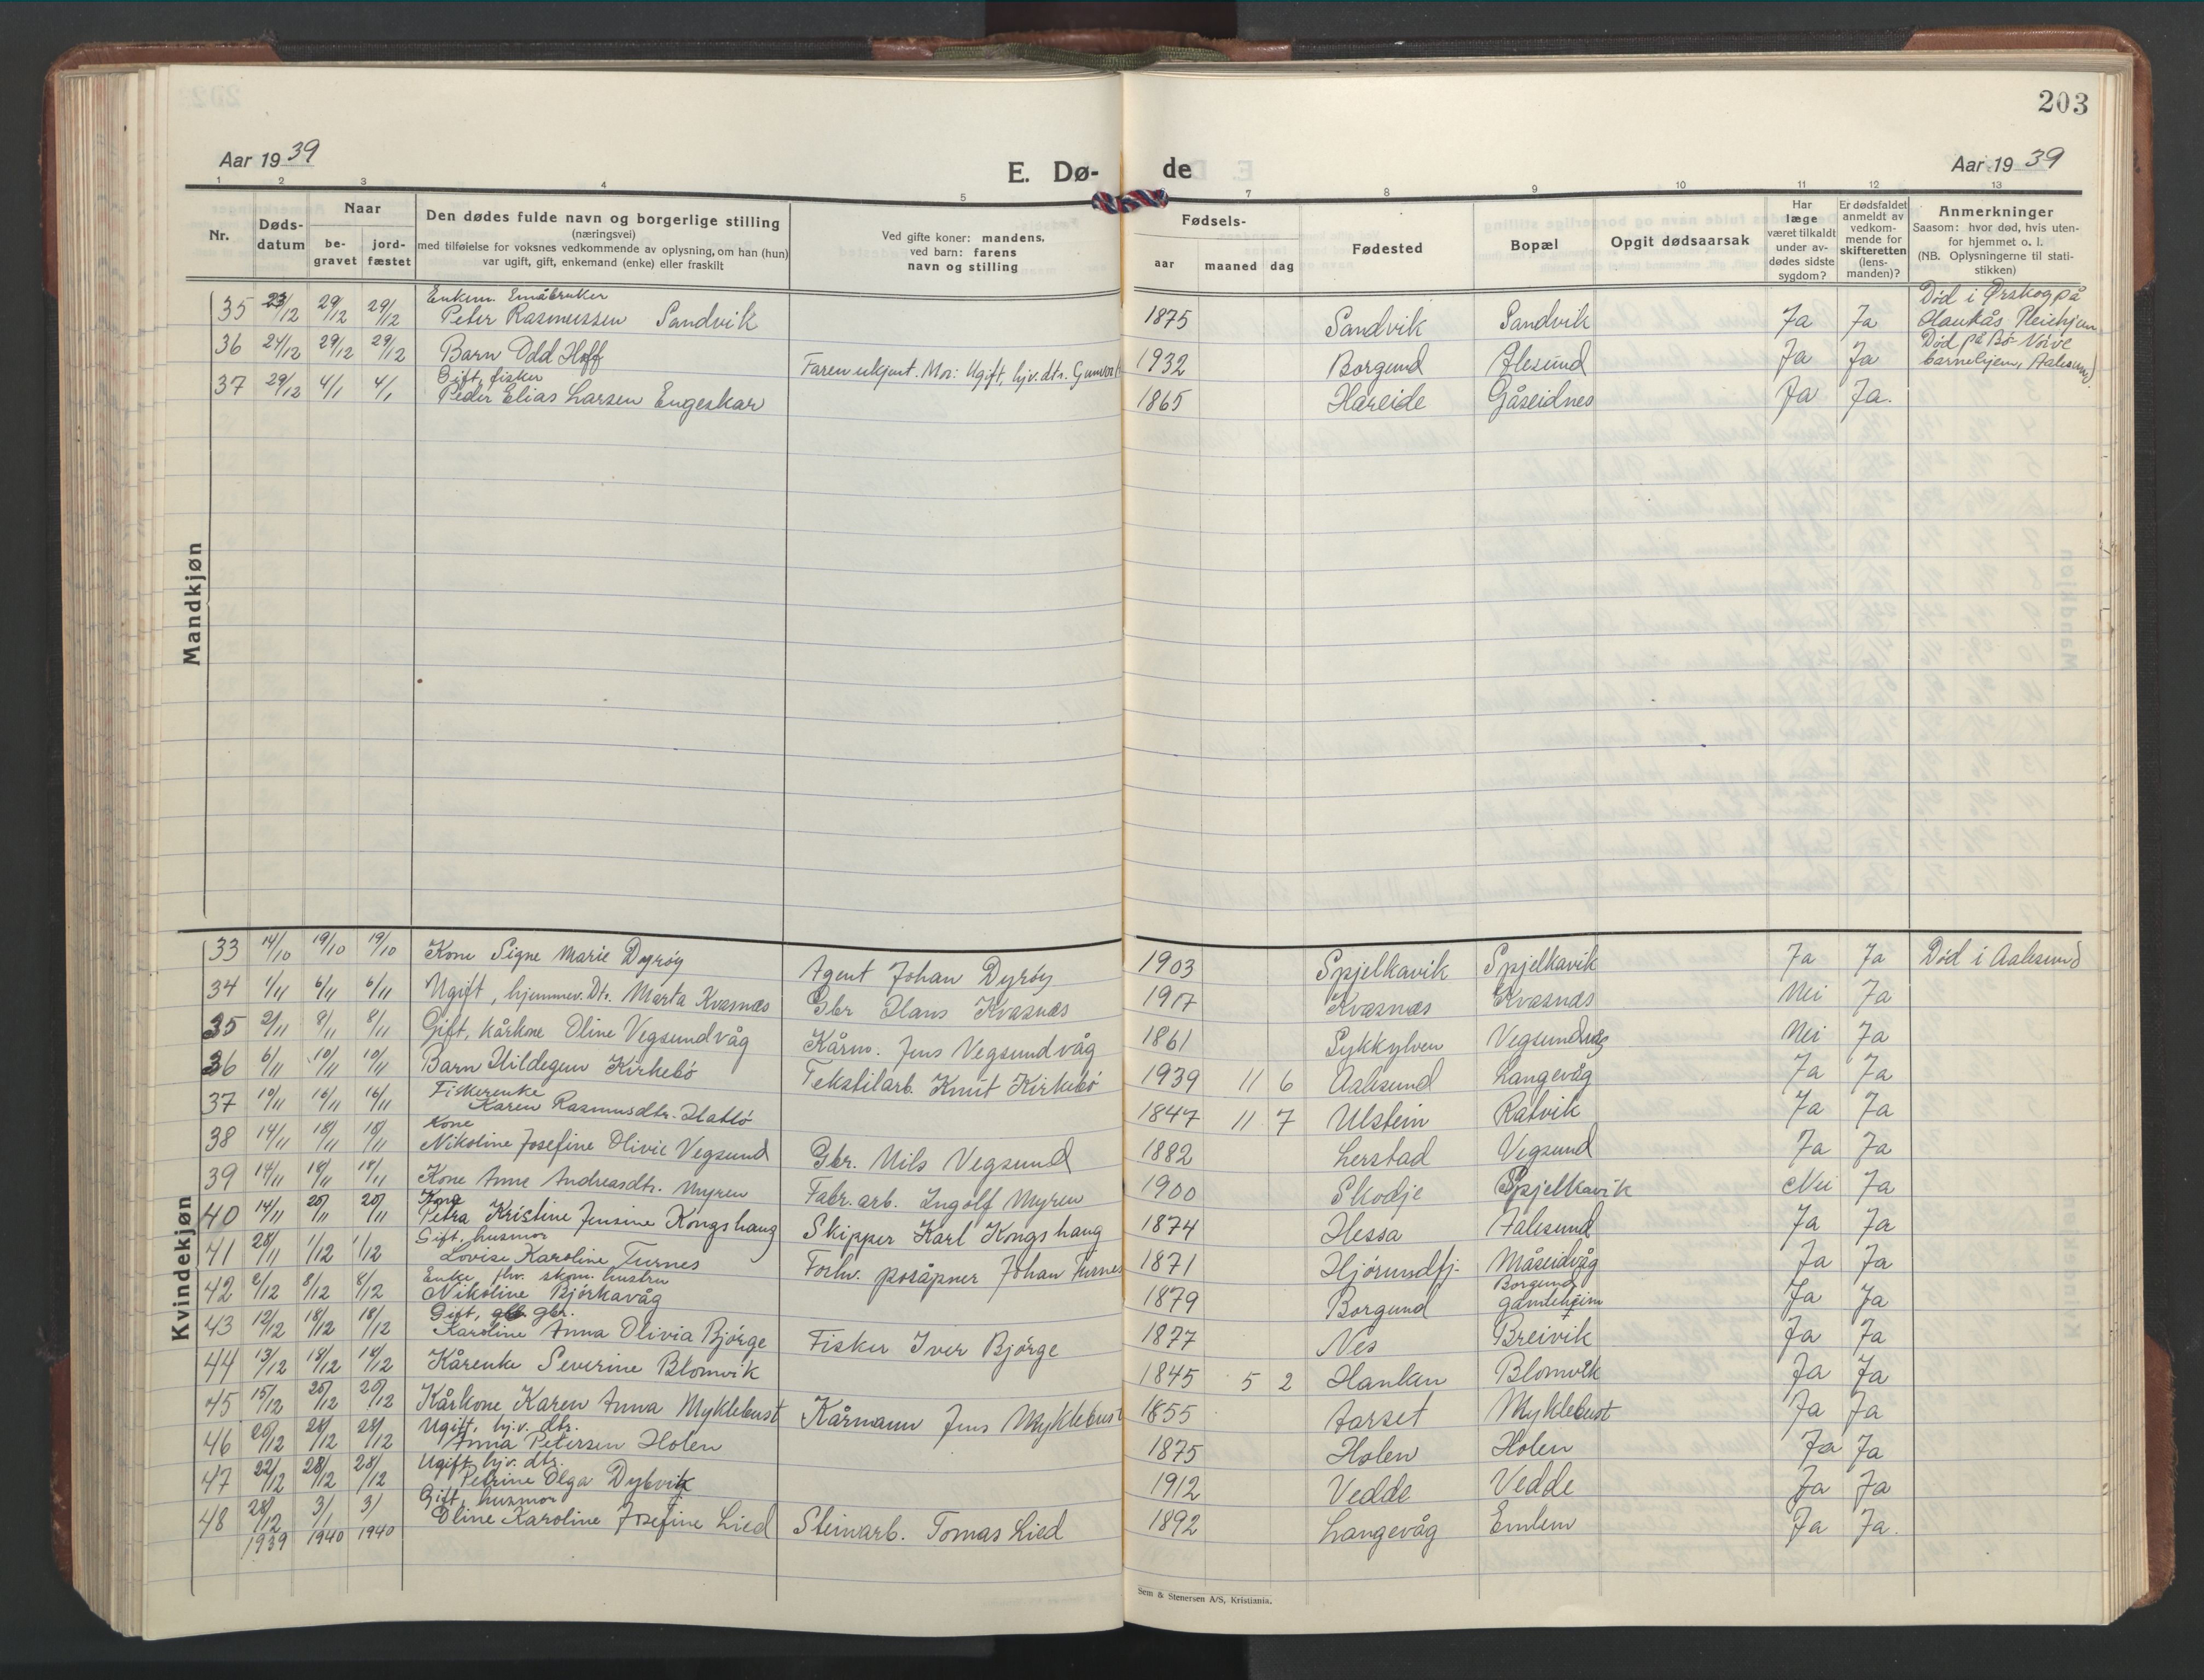 203
Aar 1939
E. Dø- de
Aar 1939
1 2 3 4 5 7 8 9 10 11 12 13
Nr.
Døds-
datum
Naar
be-
gravet
jord-
fæstet
Den dødes fulde navn og borgerlige stilling
(næringsvei)
med tilføielse for voksnes vedkommende av oplysning, om han (hun)
var ugift, gift, enkemand (enke) eller fraskilt
Ved gifte koner: mandens.
ved barn: farens
navn og stilling
Fødsels-
aar maaned dag
Fødested
Bopæl
Opgit dødsaarsak
Har
læge
været tilkaldt
under av-
dødes sidste
sygdom?
Er dødsfaldet
anmeldt av
vedkom-
mende for
skifteretten
(lens-
manden)?
Anmerkninger
Saasom: hvor død, hvis uten-
for hjemmet o. l.
(NB. Oplysningerne til stati-
stikken)
Mandkjøn
Enkem. Småbruker
35 23/12 29/12 29/12 Peter Rasmussen Sandvik 1875 Sandvik Sandvik Ja Ja Død i Ørskog på
36 24/12 29/12 29/12 Barn Odd Hoff Faren ukjent. Mor: Ugift, hjv. dtr. 1932 Borgund Ålesund Ja Ja Død på
barnehjem, Aalesund
Gift, fisker
37 29/12 4/1 4/1 Peder Elias Larsen Engeskar 1865 Hareide Gåseidnes Ja Ja.
Kvindekjøn
33 14/10 19/10 19/10 Kone Signe Marie Dyrøy Agent Johan Dyrøy 1903 Spjelkavik Spjelkavik Ja Ja Død i Aalesund
34 1/11 6/11 6/11 Ugift, hjemmev. Dtr. Marta Kvasnes Gbr Hans Kvasnes 1917 Kvasnes Kvasnes Nei Ja
35 2/11 8/11 8/11 Gift, kårkone Oline Vegsundvåg Kårm. Jens Vegsundvåg 1861 Sykkylven Vegsundvåg Nei Ja
36 6/11 10/11 10/11 Barn Hildegun Kirkebö Tekstilarb. Knut Kirkebö 1939 11 6 Aalesund Langevåg Ja Ja
Fiskerenke
37 10/11 16/11 16/11 Karen Rasmusdtr. Hatlö 1847 11 7 Ulstein Ratvik Ja Ja
Kone
38 14/11 18/11 18/11 Nikoline Josefine Olivie Vegsund Gbr. Nils Vegsund 1882 Lerstad Vegsund Ja Ja
39 14/11 18/11 18/11 Kone Anne Andreasdtr. Myren Fabr. arb. Ingolf Myren 1900 Skodje Spjelkavik Nei Ja
Kone
40 14/11 20/11 20/11 Petra Kristine Jensine Kongshaug Skipper Karl Kongshaug 1874 Hessa Aalesund Ja Ja
Gift, husmor
41 28/11 1/12 1/12 Lovise Karoline Furnes Forhv. posåpner Johan Furnes 1871 Hjørundfj. Måseidvåg Ja Ja
Enke, fhv. skom. hustru
42 2/12 8/12 8/12 Nikoline Bjørkavåg 1879 Borgund Borgund gamleheim Ja Ja
Gift, gbr.
43 12/12 18/12 18/12 Karoline Anna Olivia Bjørge Fisker Iver Bjørge 1877 Nes Breivik Ja Ja
44 13/12 18/12 18/12 Kårenke Severine Blomvik 1845 5 2 Haukan Blomvik Ja Ja
45 15/12 20/12 20/12 Kårkone Karen Anna Myklebust Kårmann Jens Myklebust 1855 Aarset Myklebust Ja Ja
Ugift, hj.v. dtr.
46 20/12 28/12 28/12 Anna Petersen Holen 1875 Holen Holen Ja Ja
Ugift hjv. dtr.
47 22/12 28/12 28/12 Petrine Olga Dybvik 1912 Vedde Vedde Ja Ja
Gift, husmor
48 28/12 1939 3/1 1940 3/1 1940 Oline Karoline Josefine Lied Steinarb. Tomas Lied 1892 Langevåg Emlem Ja Ja.
Sem & Stenersen A/S, Kristiania.